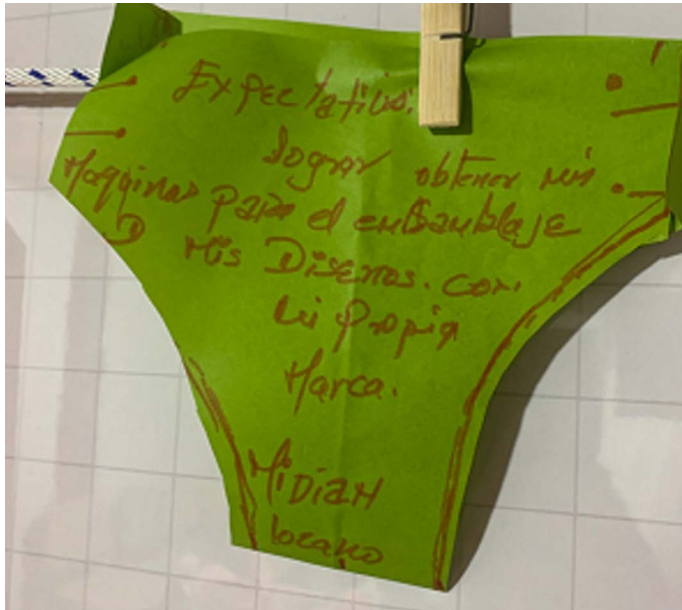 Expectativas:
Lograr obtener mis
Maquinas para el emsamblaje
D Mis Diseños. con
Mi Propia
Marca.
MiDiAM
Lozano